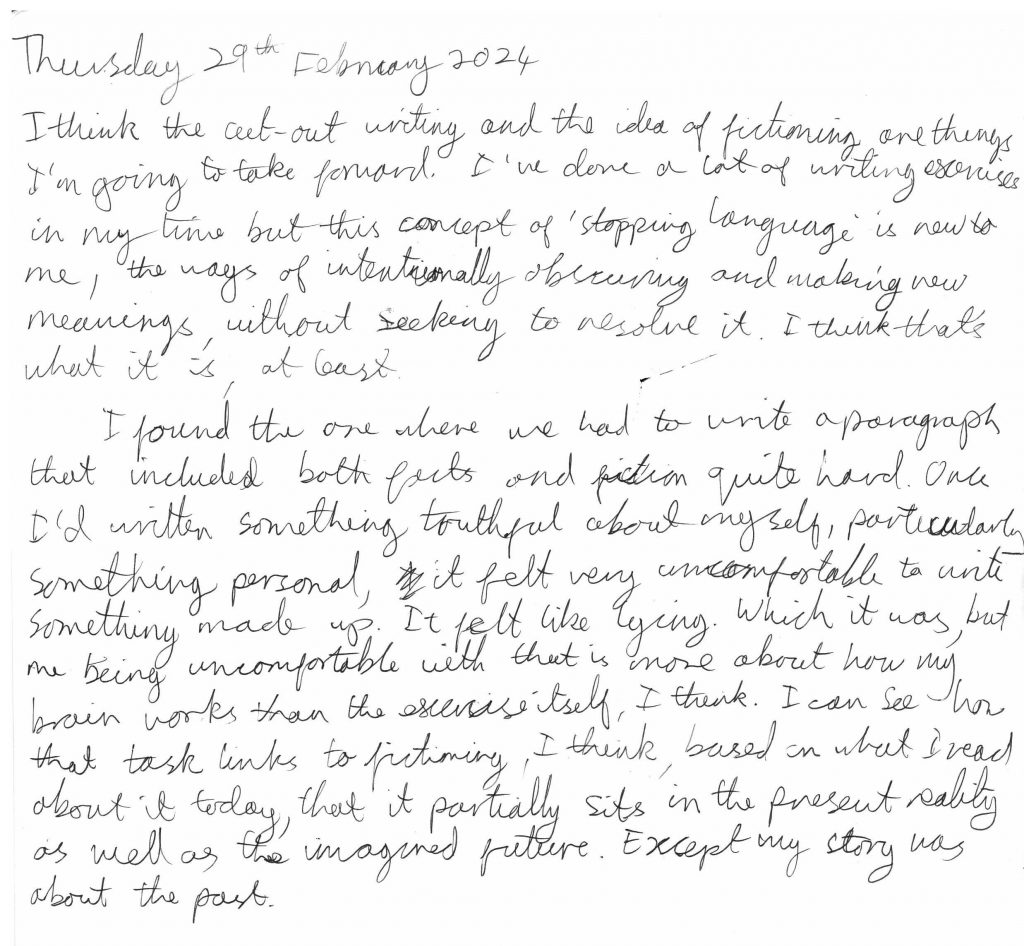 Thursday 29th February 2024
I think the cut-out writing and the idea of fictioning are things
I'm going to take forward. I've done a lot of writing exercises
in my time but this concept of 'stopping language' is new to
me, the ways of intentionally obscuring and making new
meanings, without seeking to resolve it. I think that's
what it is, at least.
I found the one where we had to write a paragraph
that included both facts and fiction quite hard. Once
I'd written something truthful about myself, particularly
something personal, it felt very uncomfortable to write
something made up. It felt like lying. Which it was, but
me being uncomfortable with that is more about how my
brain works than the exercise itself, I think. I can see how
that task links to fictioning, I think, based on what I read
about it today, that it partially sits in the present reality
as well as the imagined future. Except my story was
about the past.